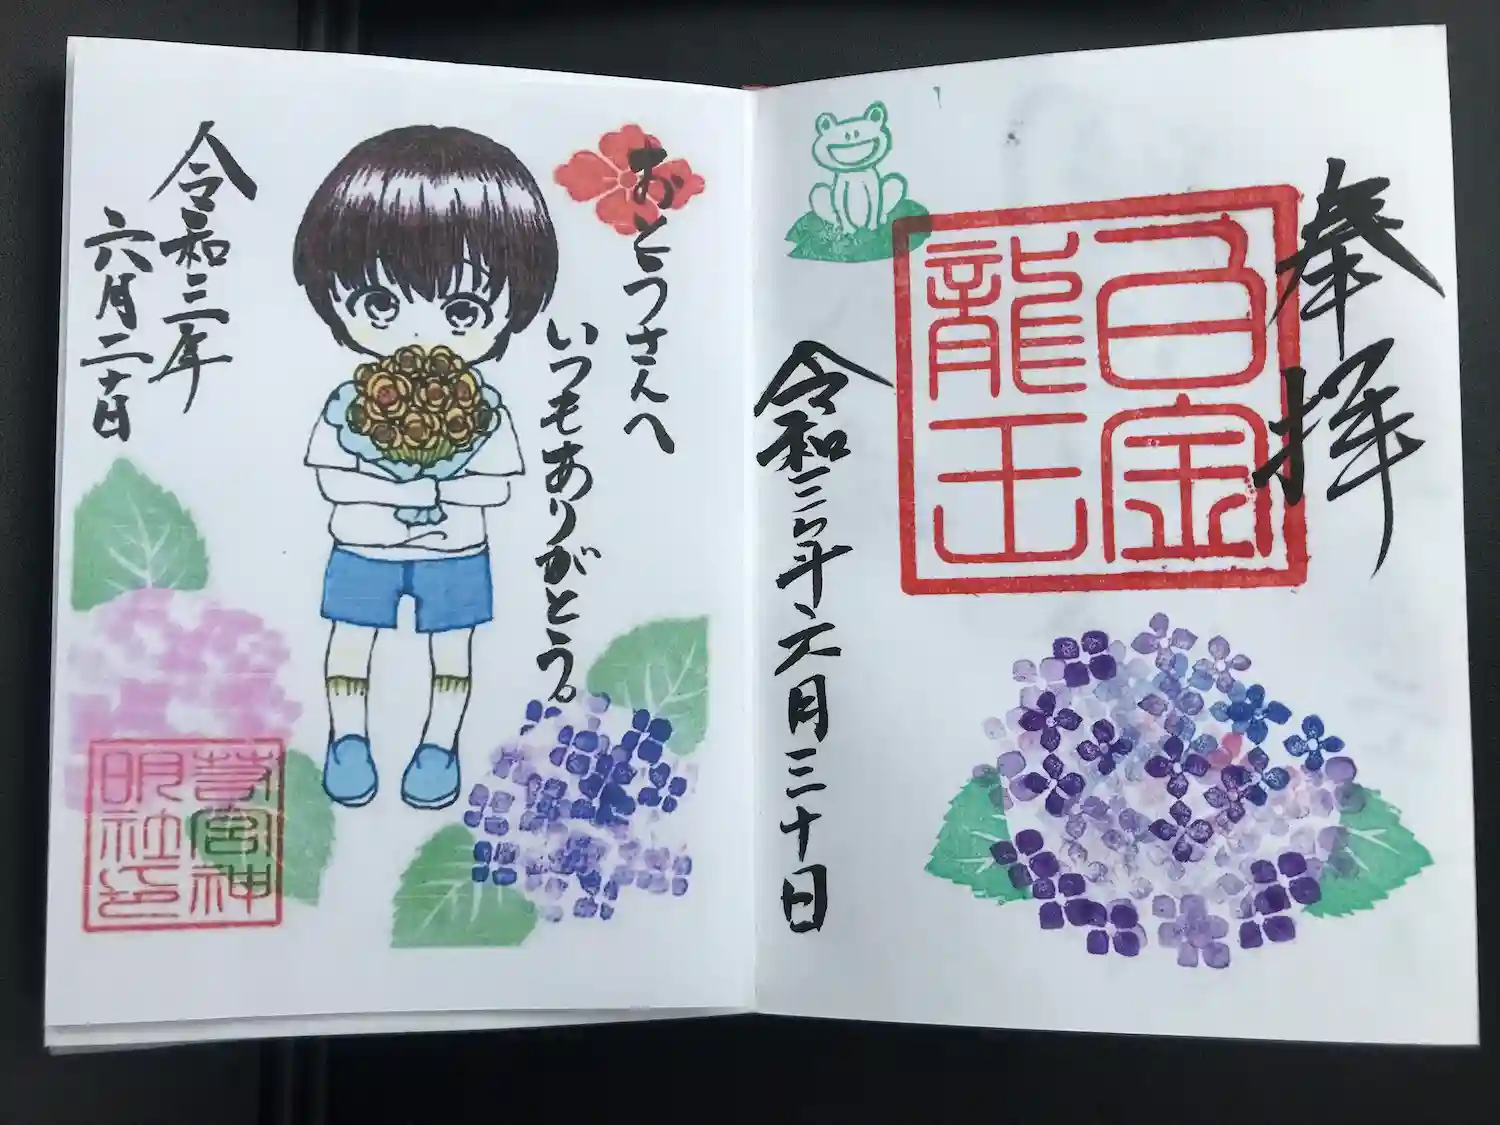 奉拝
白金
龍王
令和三年六月三十日
おとうさんへ
いつもありがとう。
令和三年
六月二十日
若宮神
明社印